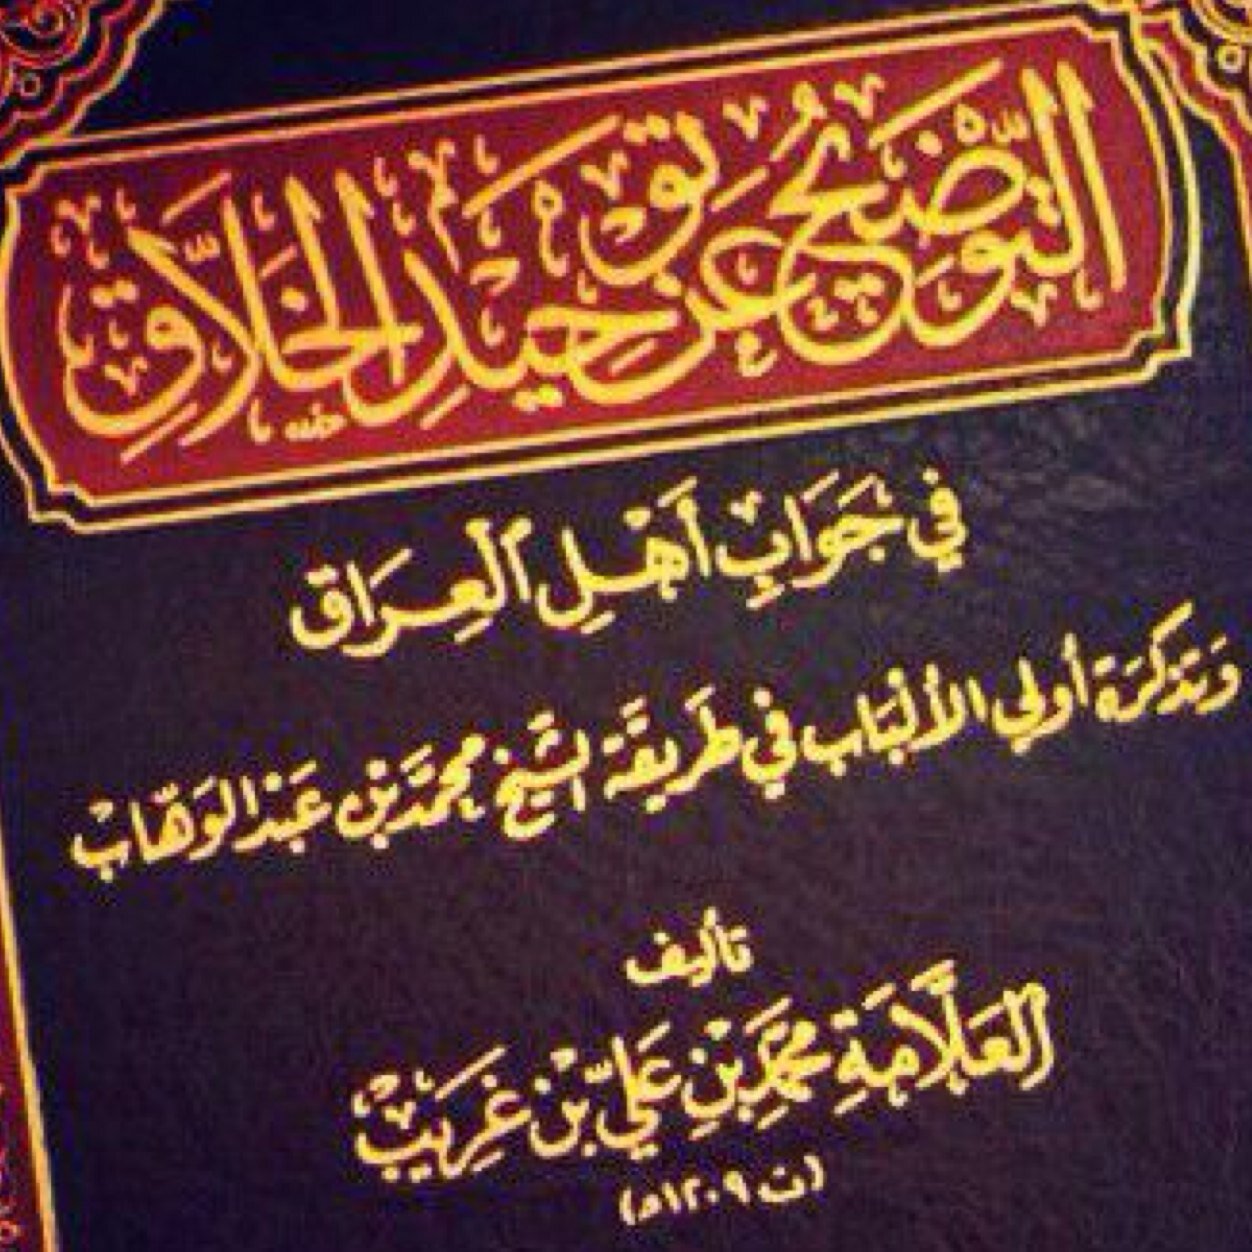 التَّوْضِيحُ عَنْ تَوْحِيدِ الخَلَّاقِ
فِي جَوَابِ أَهْلِ العِرَاقِ
وَتَذْكِرَةُ أُولِي الأَلْبَابِ فِي طَرِيقَةِ الشَّيْخِ مُحَمَّدِ بْنِ عَبْدِ الوَهَّابِ
تأليف
العَلَّامَةِ مُحَمَّدِ بْنِ عَلِيِّ بْنِ غَرِيبٍ
(ت ١٢٠٩هـ)